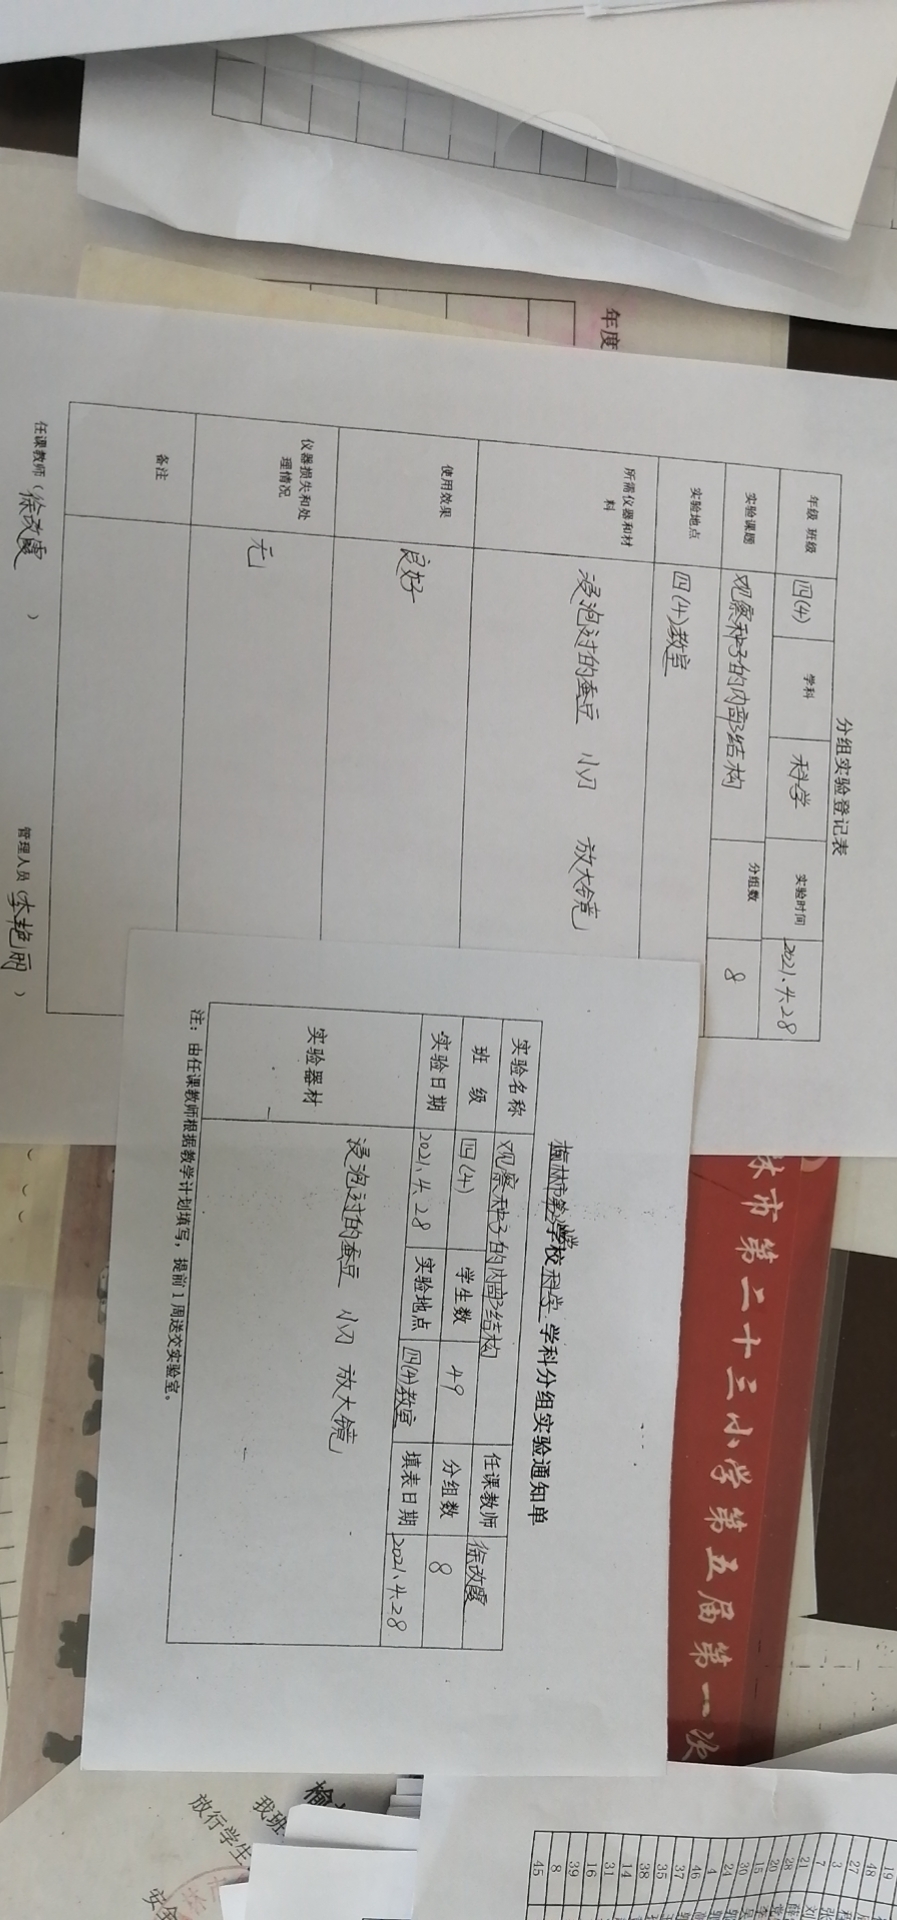 年度
分组实验登记表
年级 班级 四(4) 学科 科学 实验时间 2021.4.28
实验课题 观察种子的内部结构 分组数 8
实验地点 四(4)教室
所需仪器和材料 浸泡过的蚕豆 小刀 放大镜
使用效果 良好
仪器损失和处理情况 无
备注
任课教师（徐改霞） 管理人员（李艳丽）
学校 科学 学科分组实验通知单
实验名称 观察种子的内部结构 任课教师 徐改霞
班 级 四(4) 学生数 49 分组数 8
实验日期 2021.4.28 实验地点 四(4)教室 填表日期 2021.4.28
实验器材 浸泡过的蚕豆 小刀 放大镜
注：由任课教师根据教学计划填写，提前1周送交实验室。
市第二十三小学第五届第一次
榆
我班
放行学生
19
48
27
3
7
21
28
20
15
30
24
4
46
37
35
38
14
31
16
39
8
45